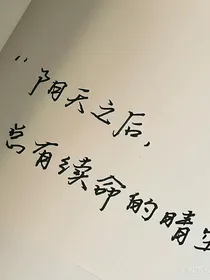 “阳天之后，
总有续命的晴空